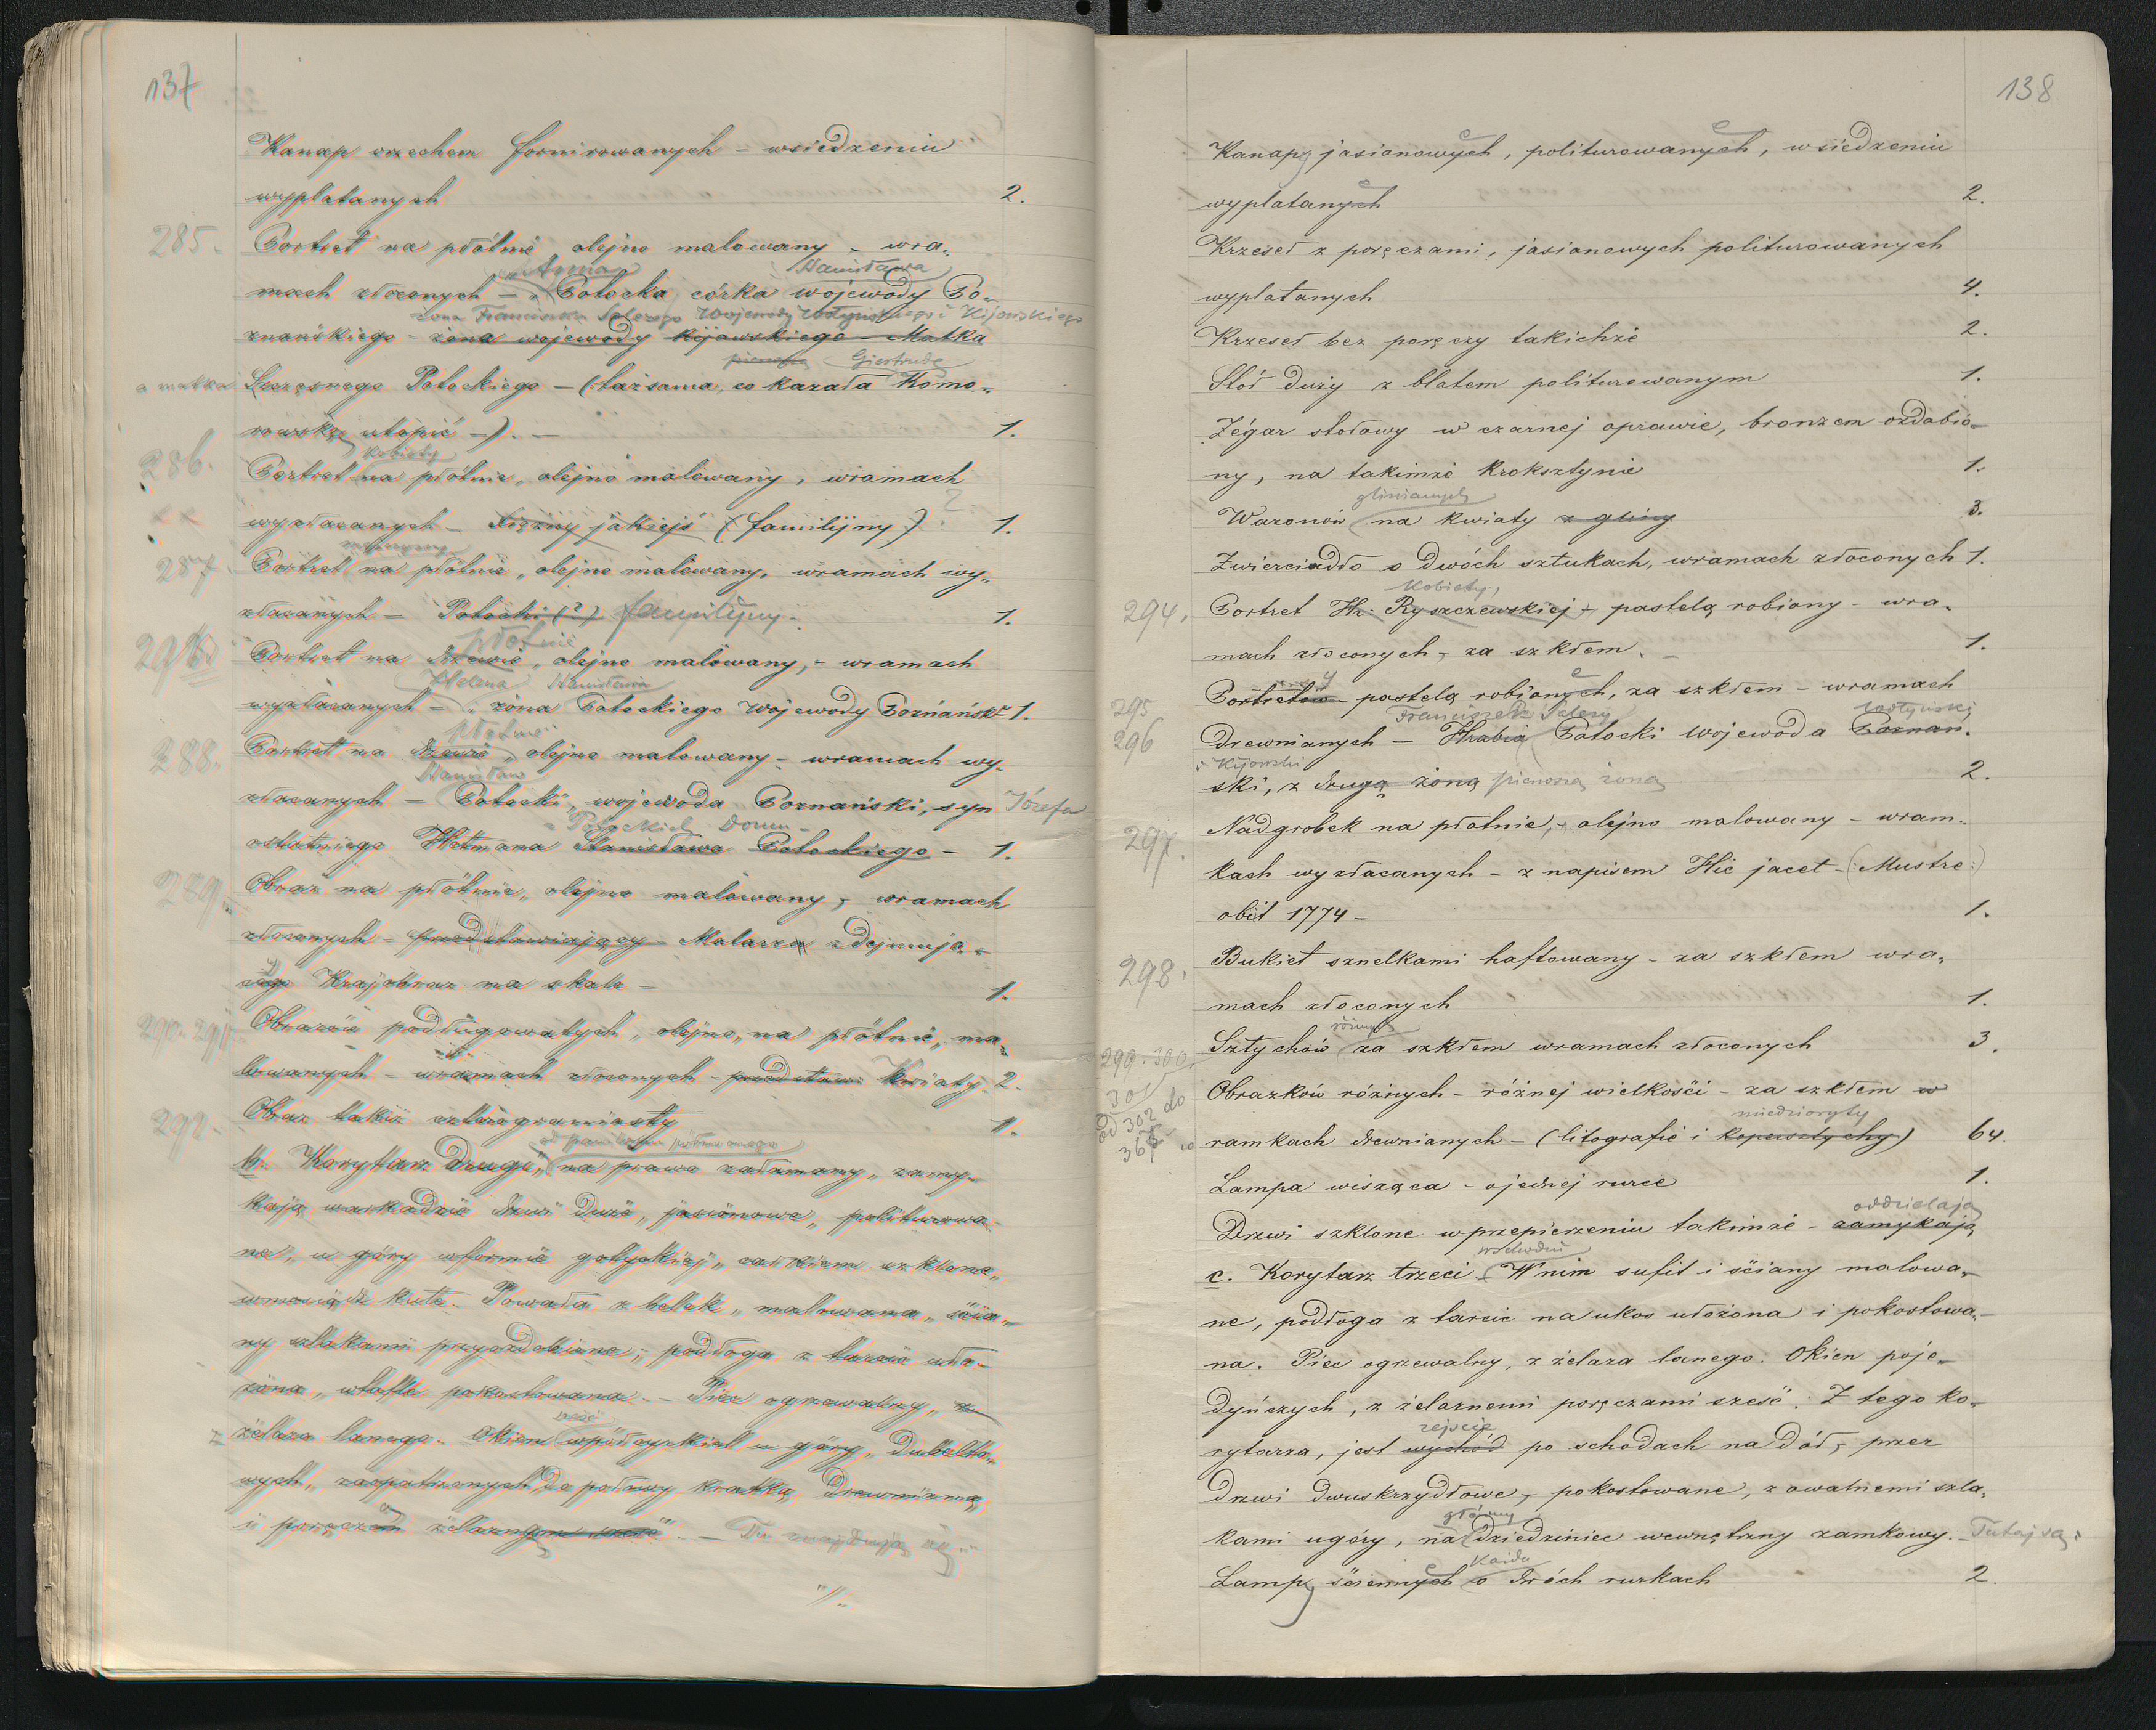 137
Kanap orzechem fornirowanych – wsiedzeniu
wyplatanych 2.
285. Portret na płótnie olejno malowany – wra-
Anna Stanisława
mach złoconych – Potocka córka wojewody Po-
żona Franciszka Salezego Wojewody Wołyńskiego i Kijowskiego
znańskiego – żona wojewody Kijowskiego – Matka
pierwszą Giertrudę
a matka Szczęsnego Potockiego – (tażsama, co kazała Komo-
rowską utopić –). – 1.
kobiety
286. Portret na płótnie, olejno malowany, wramach
wyzłacanych – (familijny) ? 1.
mężczyzny
287. Portret na płótnie, olejno malowany, wramach wy-
złacanych – Potocki (?) familijny – 1.
płótnie
Portret na drzewie, olejno malowany, – wramach
Helena Stanisława
wyzłacanych – żona Potockiego Wojewody Poznańsk. 1.
płótnie
288. Portret na drzewie, olejno malowany – wramach wy-
Stanisław
złacanych – Potocki, wojewoda Poznański, syn Józefa
Potockich Domu
ostatniego Hetmana Stanisława Potockiego – 1.
279. Obraz na płótnie, olejno malowany, wramach
złoconych – przedstawiający – Malarza zdejmują-
cego Krajobraz na skale – 1.
290. 291. Obrazów podługowatych, olejno, na płótnie, ma-
lowanych – wramach złoconych – przedstaw: Kwiaty. 2.
292. Obraz takiż czterograniasty 1.
b. Korytarz drugi, na prawo załamany, zamy-
kają warkadzie drzwi duże, jasionowe, politurowa-
ne, u góry wformie gotyckiej, całkiem szklone,
wmosiądz kute. Powała z belek, malowana, ścia-
ny szlakami przyozdobione; podłoga z tarcic uło-
żona, wtafle pokostowana. – Piec ogrzewalny, z
sześć
z żelaza lanego. Okien wpółłyżkich u góry, dubelto-
wych, zaopatrzonych do połowy kratką drewnianą
i poręczem żelaznym sześć. – Tu znajdują się:
"/.
138
Kanapy jasionowych, politurowanych, wsiedzeniu
wyplatanych 2.
Krzeseł z poręczami, jasionowych politurowanych
wyplatanych 4.
Krzeseł bez poręczy takichże 2.
Stół duży z blatem politurowanym 1.
Zégar stołowy w czarnej oprawie, bronzem ozdobio-
ny, na takimże Kroksztynie 1.
glinianych
Wazonów na kwiaty z gliny 3.
Zwierciadło o dwóch sztukach, wramach złoconych 1.
Kobiety,
294. Portret Hr. Ryszczewskiej – pastelą robiony – wra-
mach złoconych, za szkłem. – 1.
295 Portretów pastelą robionych, za szkłem – wramach
Franciszek Salezy wołyński
296 Drewnianych – Hrabia Potocki Wojewoda Poznań-
i Kijowski
ski, z drugą żoną pierwszą żoną 2.
297. Nadgrobek na płótnie, – olejno malowany – wram-
kach wyzłacanych – z napisem Hic jacet – (:Mustre:)
obit 1774 – 1.
298. Bukiet sznelkami haftowany – za szkłem wra-
mach złoconych 1.
różnych
299. 300. Sztychów za szkłem wramach złoconych 3.
301
Obrazków różnych – różnej wielkości – za szkłem w
od 302 do miedzioryty
ramkach drewnianych – (litografie i kopersztychy) 64.
Lampa wisząca – ojednej rurce 1.
oddzielają
Drzwi szklone wprzepierzeniu takimże – zamykają
wschodni
c. Korytarz trzeci. Wnim sufit i ściany malowa-
ne, podłoga z tarcic na ukos ułożona i pokostowa-
na. Piec ogrzewalny, z żelaza lanego. Okien poje-
dyńczych, z żelaznemi poręczami sześć. Z tego ko-
zejście
rytarza, jest wychód po schodach na dół, przez
drzwi dwuskrzydłowe, pokostowane, z owalnemi szla-
główny
kami ugóry, na dziedziniec wewnętrzny zamkowy. – Tutaj są:
Każda
Lampy ściennych o dwóch rurkach 2.